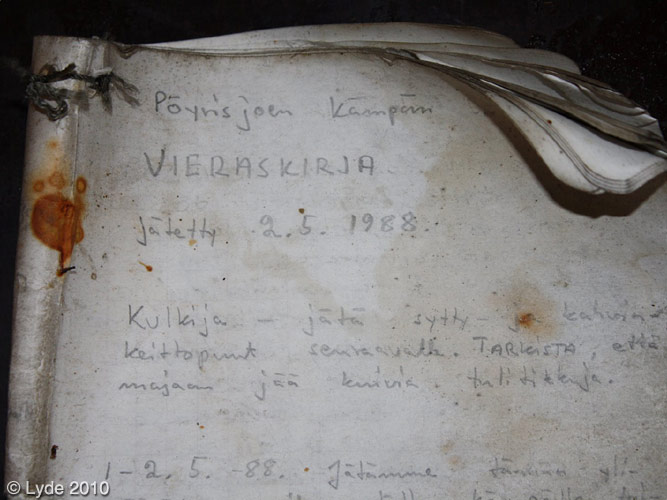 Pöyrisjoen Kämpän
VIERASKIRJA
jätetty 2.5. 1988.
Kulkija - jätä sytty- ja kahvin-
keittopuut seuraavalle. TARKISTA, että
majaan jää kuivia tulitikkuja.
1-2. 5. -88. Jätämme tämän yli-
© Lyde 2010